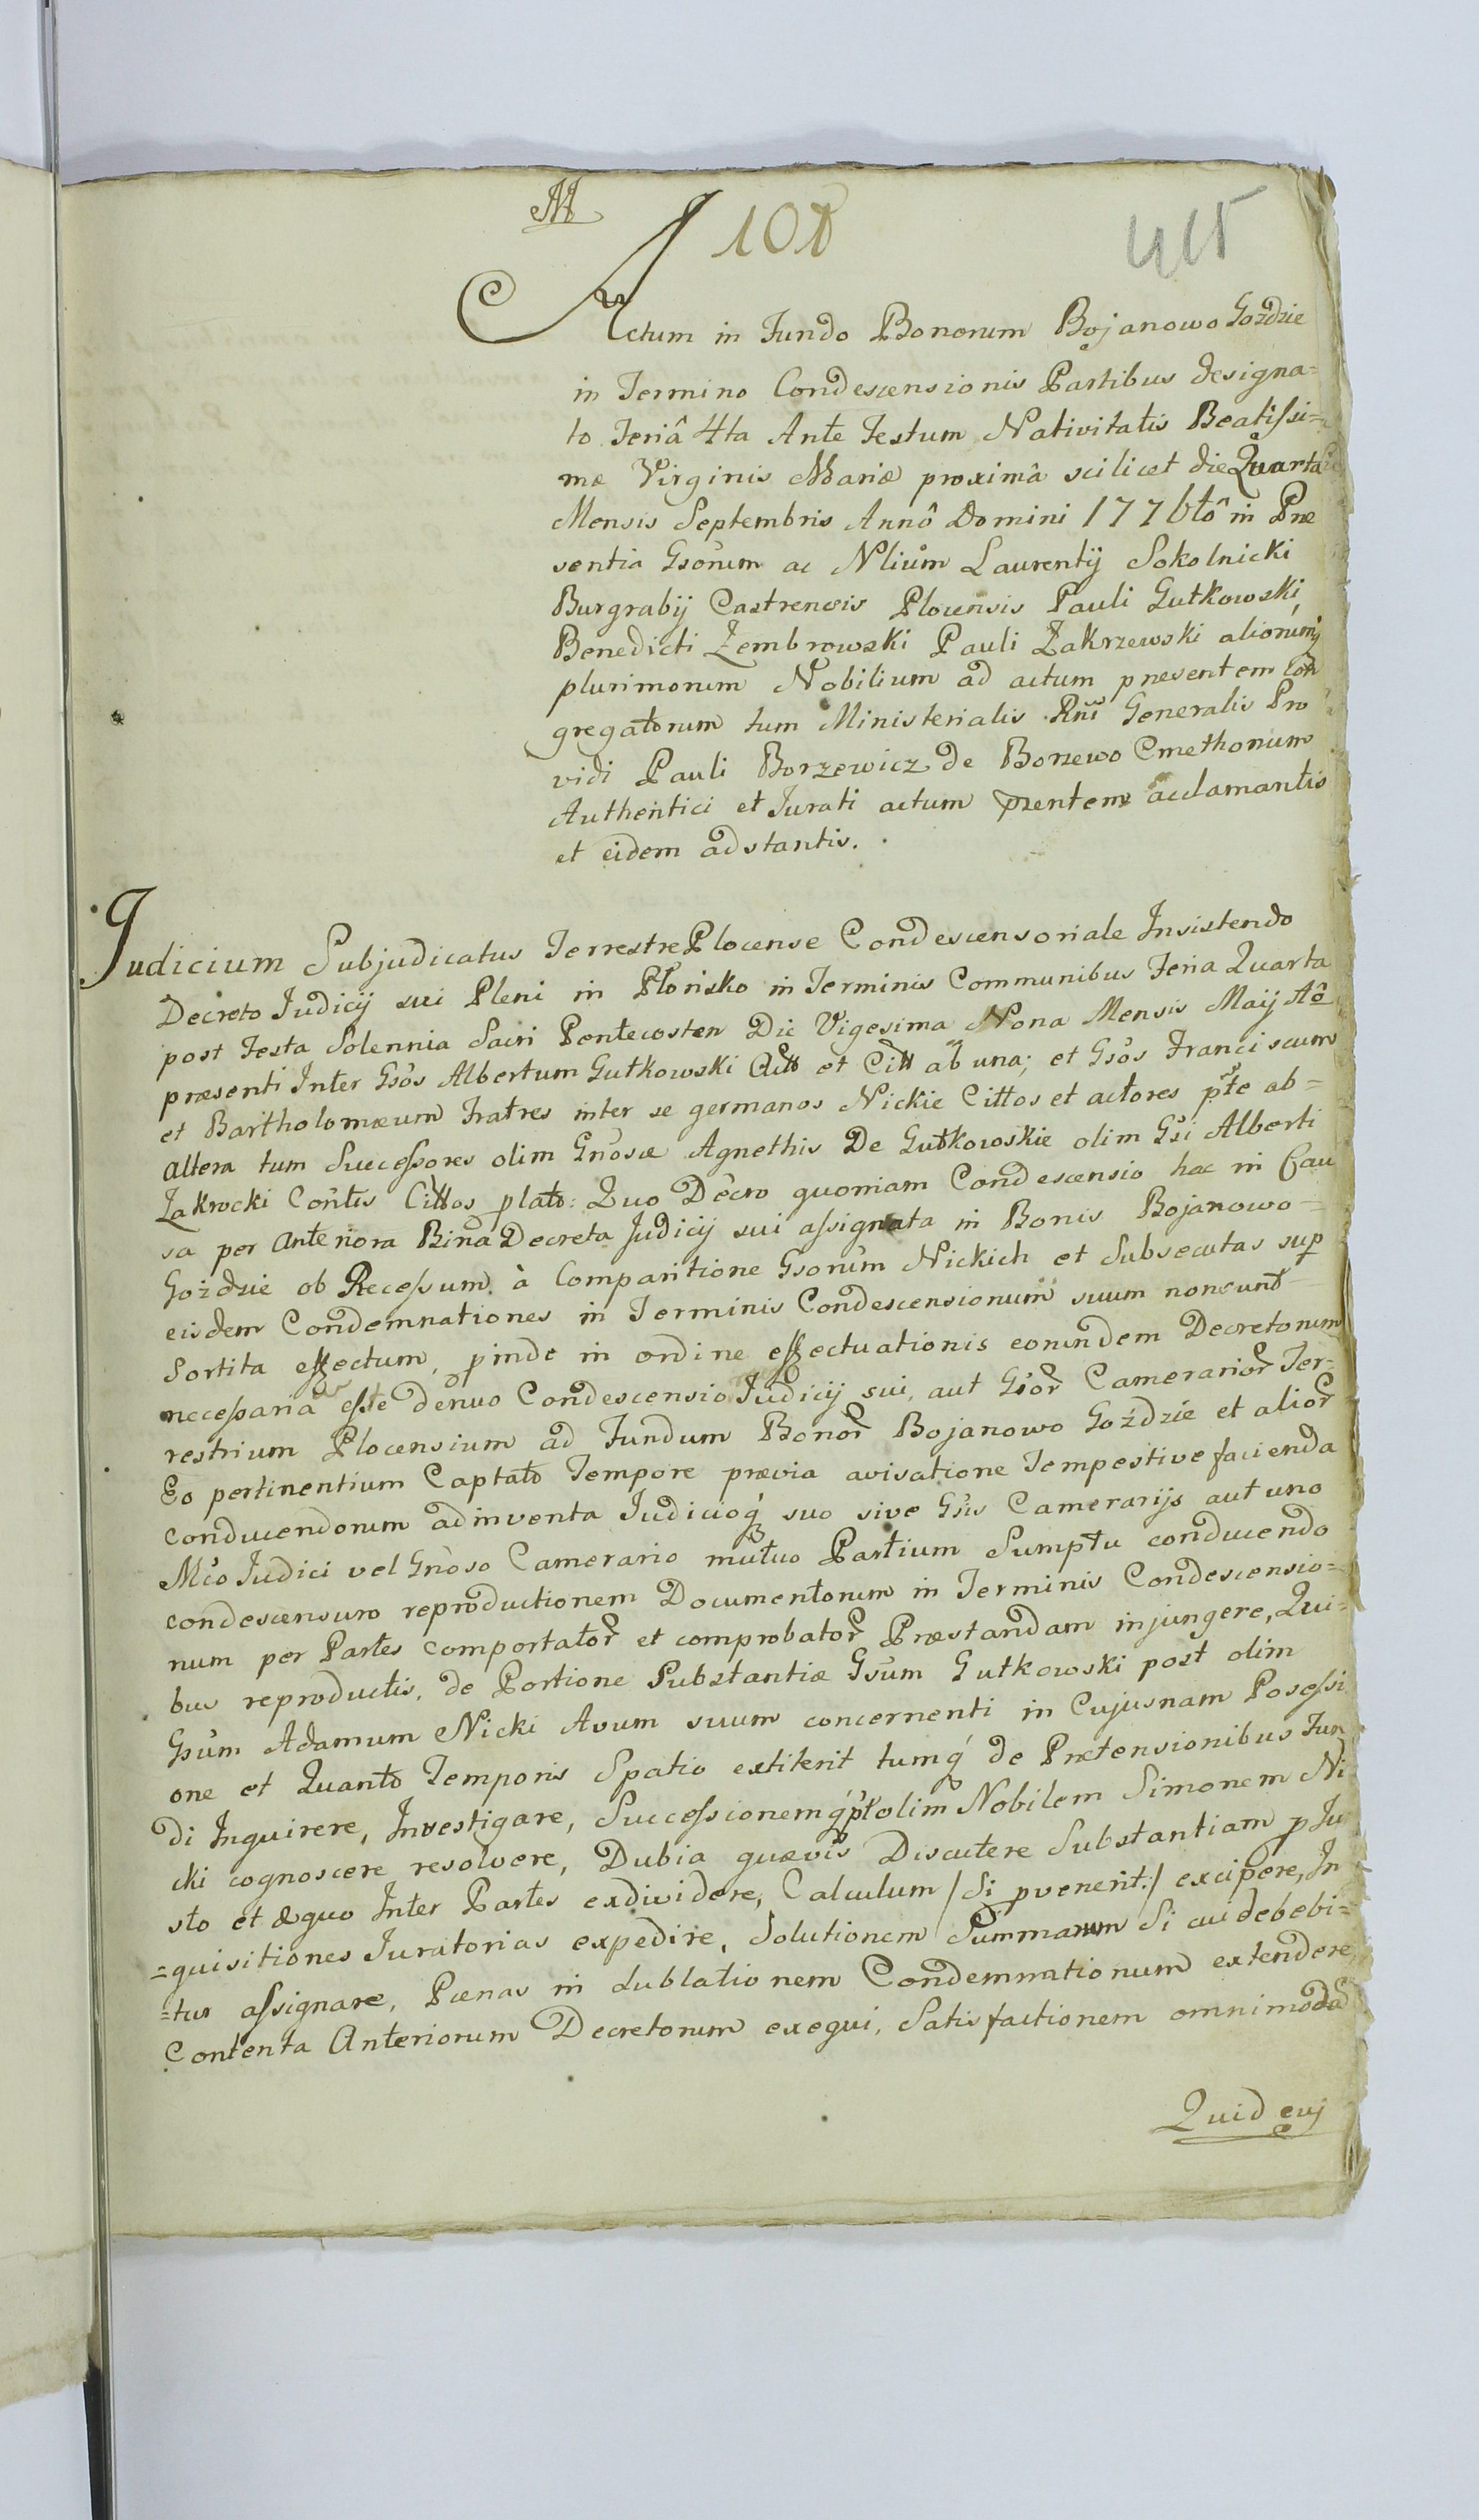 M
108
415
Actum in Fundo Bonorum Bojanowo Gozdzie
in Termino Condescensionis Partibus designa=
to Feriâ 4ta Ante Festum Nativitatis Beatissi=
mæ Virginis Mariæ proximâ scilicet die Quarta
Mensis Septembris Annô Domini 1776tô in Præ
sentia Gsorum ac Nlium Laurentij Sokolnicki
Burgrabij Castrensis Plocensis Pauli Gutkowski
Benedicti Zembrowski Pauli Zakrzewski aliorumq
plurimorum Nobilium ad actum præsentem con
gregatorum tum Ministerialis Rni Generalis Pro
vidi Pauli Borzewicz de Borzewo Cmethonum
Authentici et Jurati actum pzentem acclamantis
et eidem adstantis.
Judicium Subjudicatus Terrestre Plocense Condescensoriale Insistendo
Decreto Judicij sui Pleni in Płońsko in Terminis Communibus Feria Quarta
post Festa Solennia Sacri Pentecosten Die Vigesima Nona Mensis Maij Aô
præsenti Inter Gsos Albertum Gutkowski Actt et Citt ab una; et Gsos Franciscum
et Bartholomæum Fratres inter se germanos Nickie Cittos et actores pte ab=
altera tum Successores olim Gnosæ Agnethis De Gutkowskie olim Gsi Alberti
Zakrocki Contis Cittos plato: Quo Decro quoniam Condescensio hac in Cau
sa per Anteriora Bina Decreta Judicij sui assignata in Bonis Bojanowo=
Goździe ob Recessum à Comparitione Gsorum Nickich et Subsecutas sup
eisdem Condemnationes in Terminis Condescensionum suum non sunt
Sortita effectum, pinde in ordine effectuationis eorundem Decretorum
necessaria esse denuo Condescensio Judicij sui, aut Gsor Camerarior Ter=
restrium Plocensium ad Fundum Bonor Bojanowo Goździe et alior
Eo pertinentium Captato Tempore prævia avisatione Tempestive facienda
conducendorum adinventa Judicioq suo sive Gsis Camerarijs aut uno
Mco Judici vel Gnoso Camerario mutuo Partium Sumptu conducendo
condescensuro reproductionem Documentorum in Terminis Condescensio=
num per Partes comportator et comprobator Præstandam injungere, Qui=
bus reproductis, de Portione Substantiæ Gsum Gutkowski post olim
Gsum Adamum Nicki Avum suum concernenti in Cujusnam Possessi
one et Quanto Temporis Spatio extiterit tumq de Prætensionibus Fun
di Inquirere, Investigare, Successionemq pt olim Nobilem Simonem Ni
cki cognoscere resolvere, Dubia quævis Discutere Substantiam p Ju
sto et æquo Inter Partes exdividere, Calculum /Si pvenerit:/ excipere, In
=quisitiones Juratorias expedire, Solutionem Summarum Si cui debebi=
=tur assignare, Pænas in Sublationem Condemnationum extendere,
Contenta Anteriorum Decretorum exequi, Satisfactionem omnimoda
Quid euj